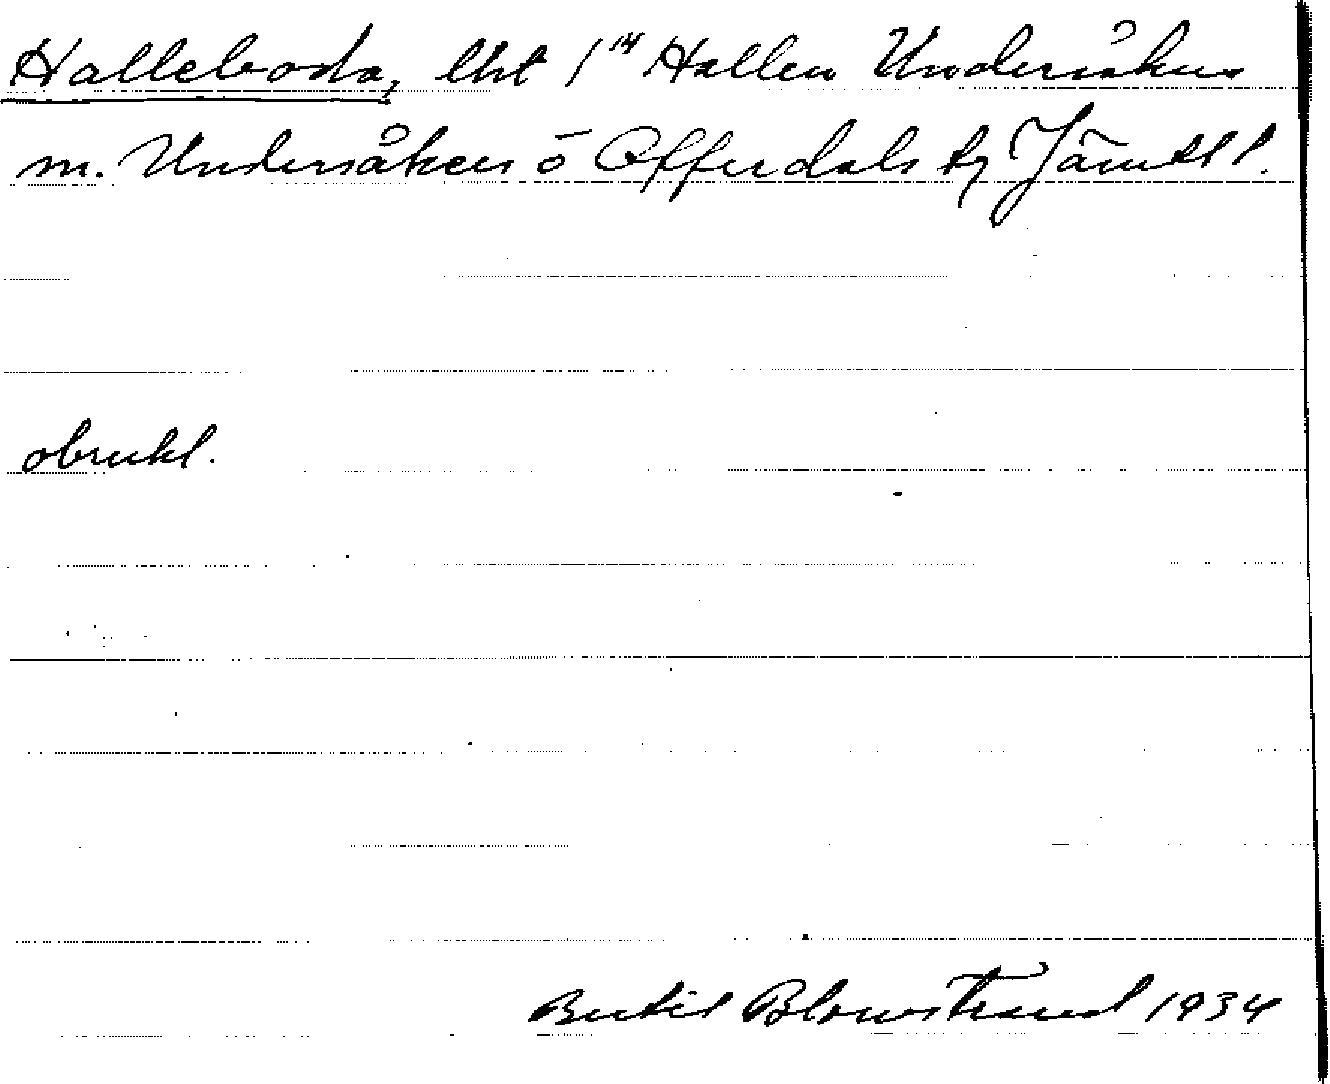 Halleboda, lht 1¹⁴ Hallen Undersåkers
m. Undersåkers o Offerdals tg Jämtl l.
obrukl.
Bertil Blomstrand 1934